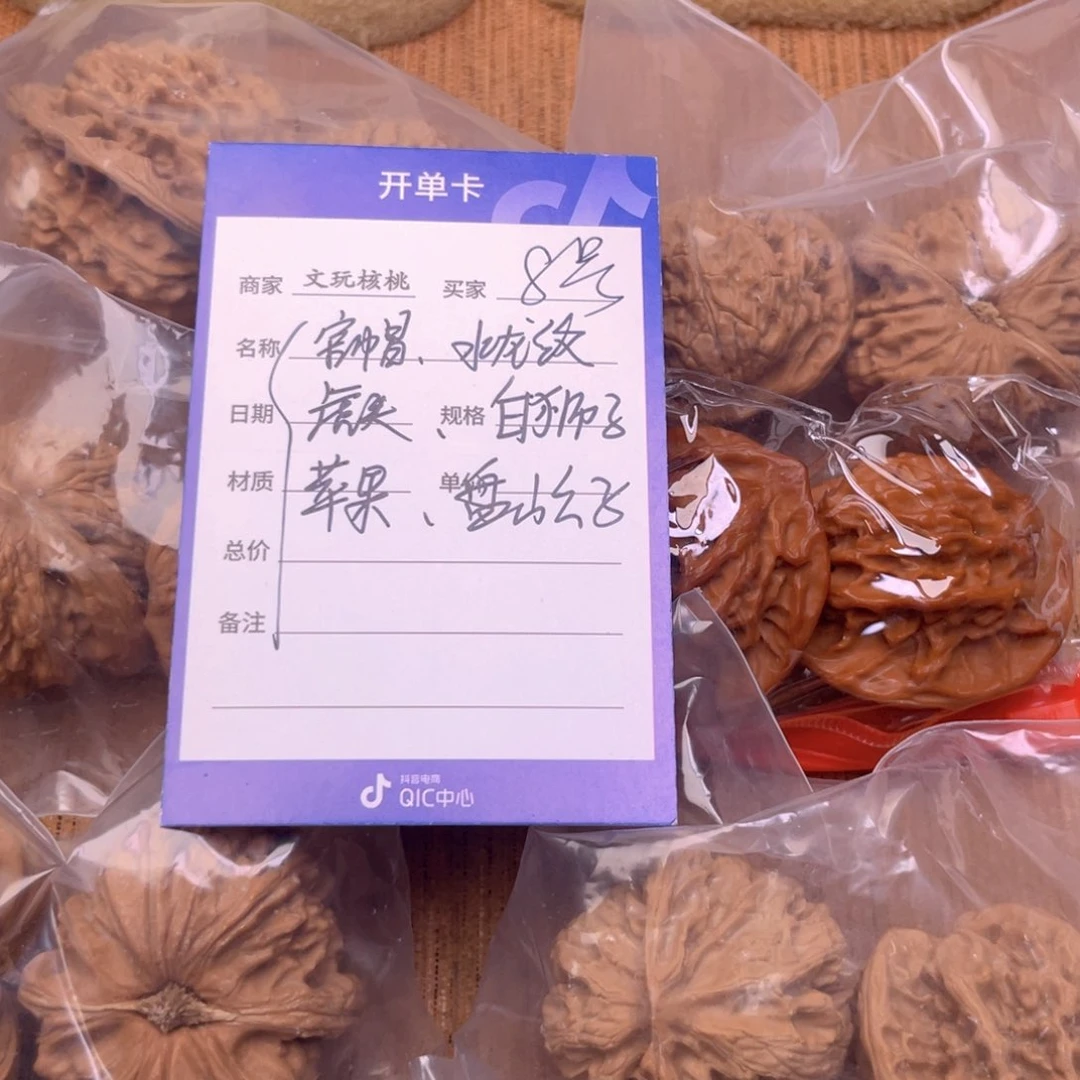 开单卡
商家 文玩核桃 买家 8号
名称 官帽、水龙纹
日期 虎头、规格 白狮子
材质 苹果、单 盘山公子
总价
备注
抖音电商
QIC中心